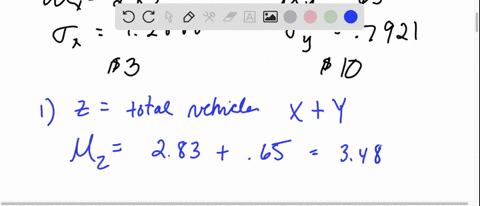 σx = 1.2 σy = .7921
$3 $10
1) Z = total vehicles X + Y
μz = 2.83 + .65 = 3.48